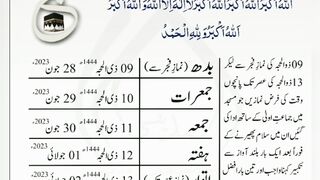 اَللّٰهُ اَكْبَرُ اَللّٰهُ اَكْبَرُ لَا اِلٰهَ اِلَّا اللّٰهُ وَاللّٰهُ اَكْبَرُ
اَللّٰهُ اَكْبَرُ وَلِلّٰهِ الْحَمْدُ
09 ذوالحجہ کی نماز فجر سے لیکر
13 ذوالحجہ کی عصر تک پانچوں
وقت کی فرض نمازیں جو مسجد
میں جماعتِ اولیٰ کے ساتھ ادا کی
گئیں ان میں سلام پھیرنے کے
فوراً بعد ایک بار بلند آواز سے
تکبیر کہنا واجب اور تین بار افضل
بدھ (نماز فجر سے) 09 ذی الحجہ 1444ھ 28 جون 2023ء
جمعرات 10 ذی الحجہ 1444ھ 29 جون 2023ء
جمعہ 11 ذی الحجہ 1444ھ 30 جون 2023ء
ہفتہ 12 ذی الحجہ 1444ھ 01 جولائی 2023ء